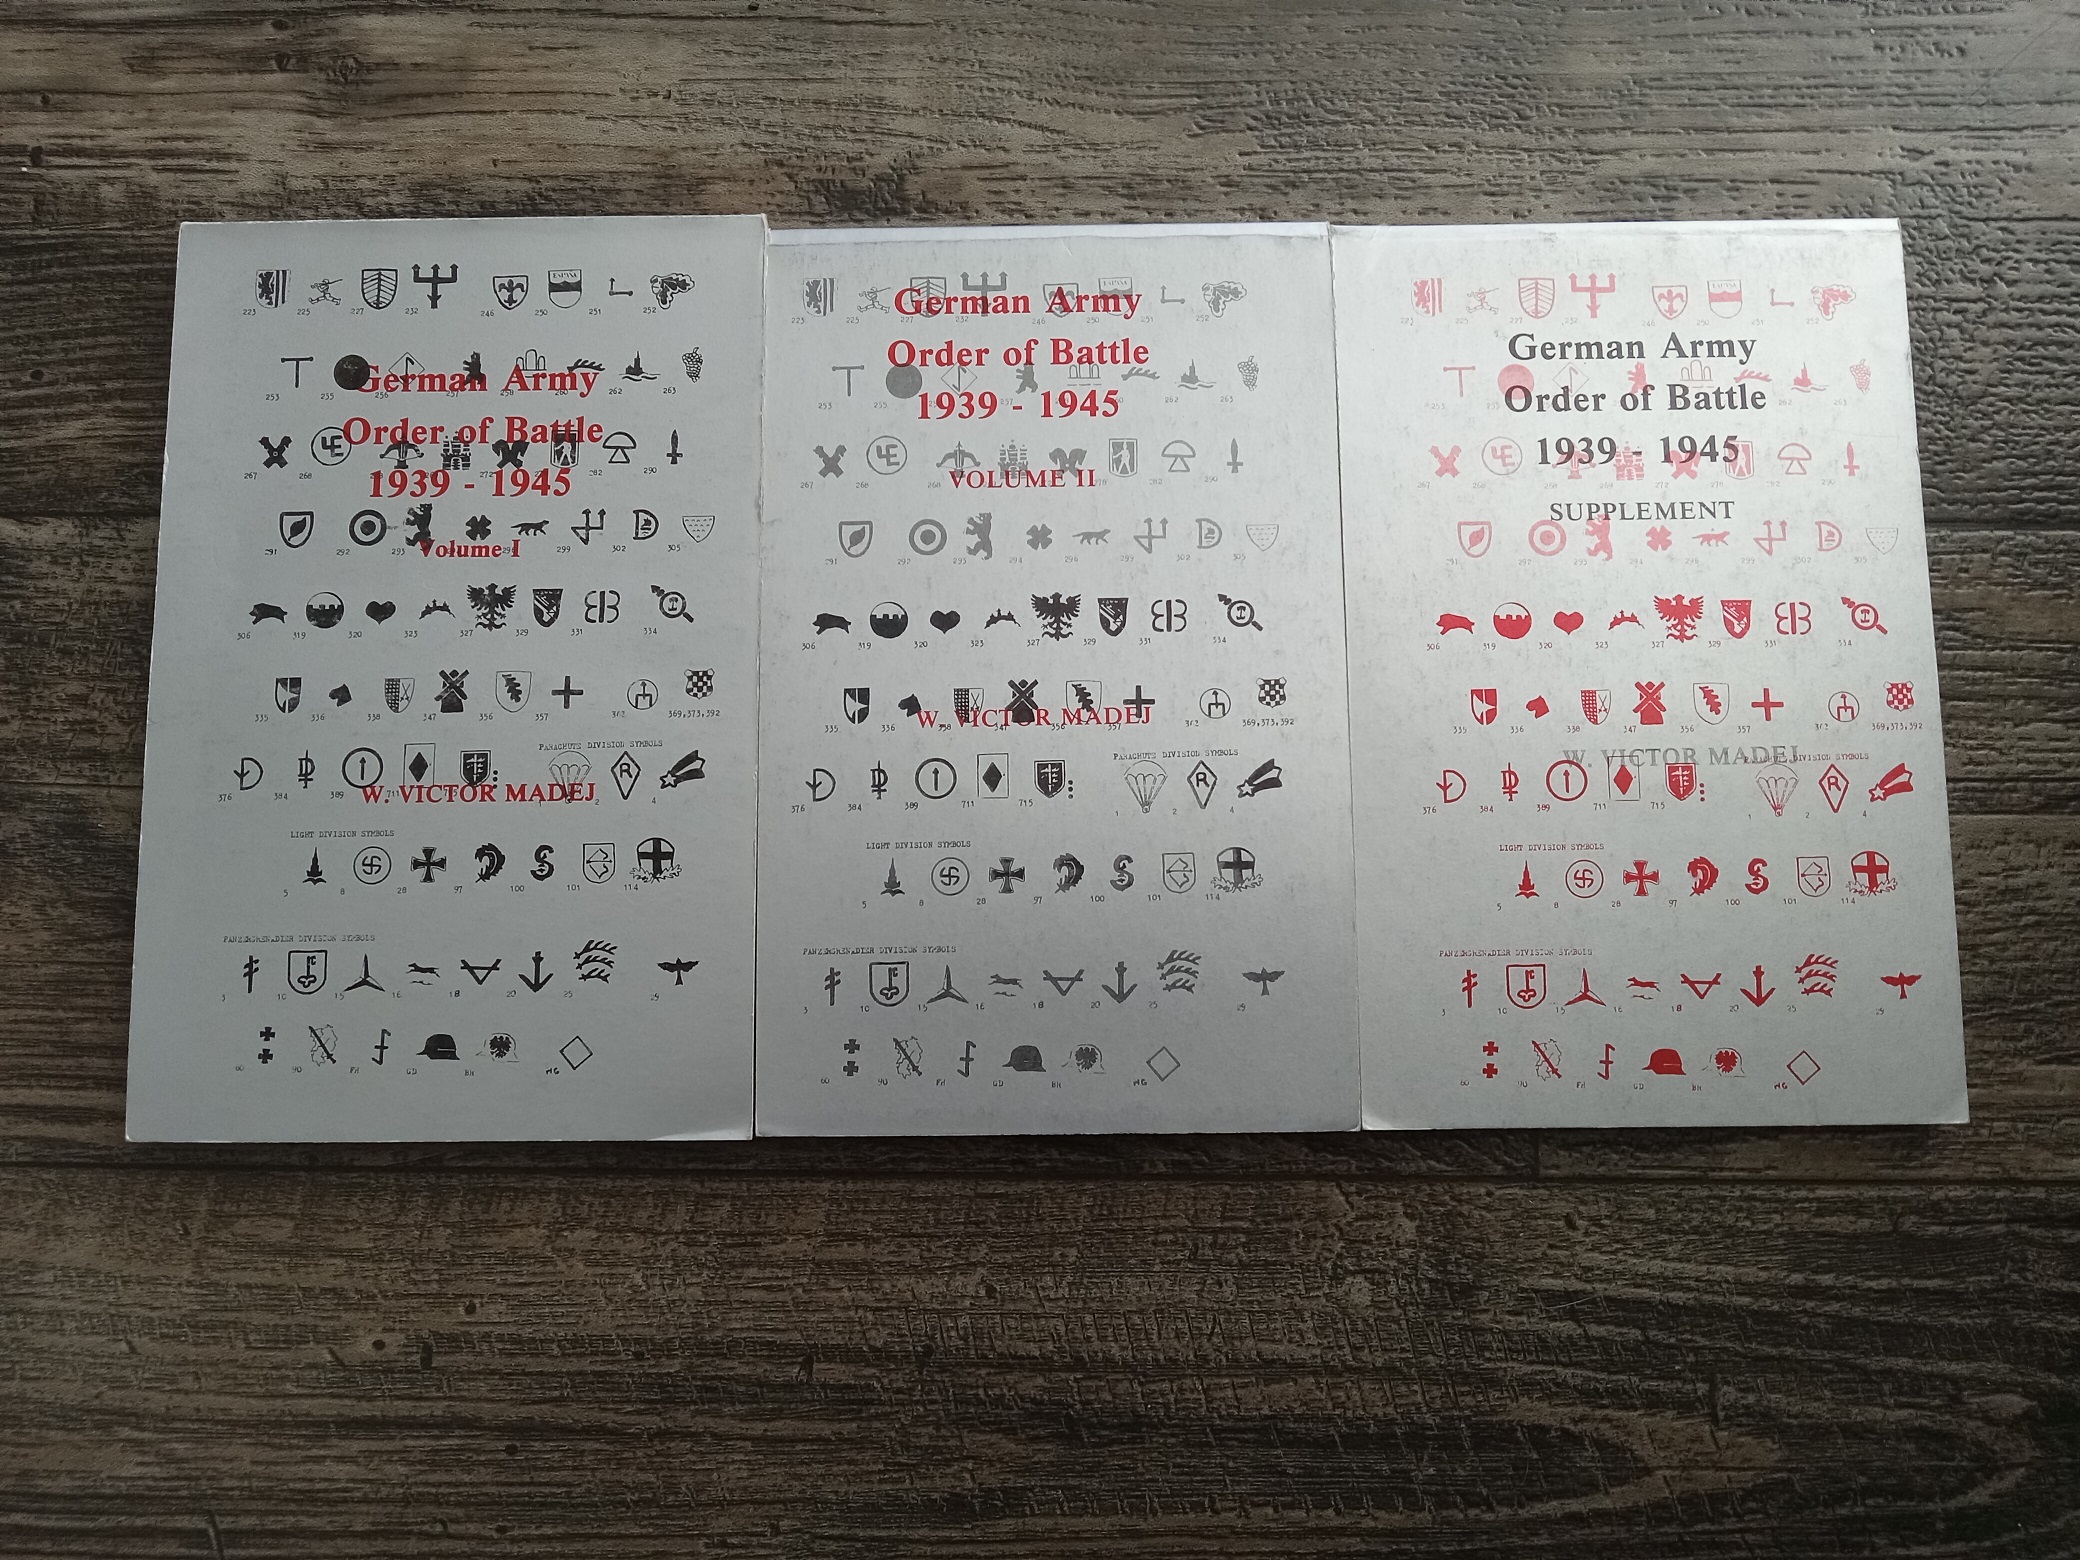 223 225 227 232 246 250 251 252
ESPANA
German Army
253 255 256 257 258 260 262 263
Order of Battle
267 268 272 282 290
1939 - 1945
291 292 293 299 302 305
Volume I
306 319 320 323 327 329 331 334
335 336 338 347 356 357 362 369,373,392
PARACHUTE DIVISION SYMBOLS
376 384 389 711 2 4
W. VICTOR MADEJ
LIGHT DIVISION SYMBOLS
5 8 28 97 100 101 114
PANZERGRENADIER DIVISION SYMBOLS
3 10 15 16 18 20 25 29
60 90 FH GD BR HG
German Army
Order of Battle
1939 - 1945
VOLUME II
291 292 293 294 296 299 302 305
306 319 320 323 327 329 331 334
W. VICTOR MADEJ
335 336 338 347 356 357 362 369,373,392
PARACHUTE DIVISION SYMBOLS
376 384 389 711 715 1 2 4
LIGHT DIVISION SYMBOLS
5 8 28 97 100 101 114
PANZERGRENADIER DIVISION SYMBOLS
3 10 15 16 18 20 25 29
60 90 FH GD BR HG
German Army
Order of Battle
1939 - 1945
SUPPLEMENT
306 319 320 323 327 329 331 334
335 336 338 347 356 357 362 369,373,392
W. VICTOR MADEJ
PARACHUTE DIVISION SYMBOLS
376 384 389 711 715 1 2 4
LIGHT DIVISION SYMBOLS
5 8 28 97 100 101 114
PANZERGRENADIER DIVISION SYMBOLS
3 10 15 16 18 20 25 29
60 90 FH GD BR HG